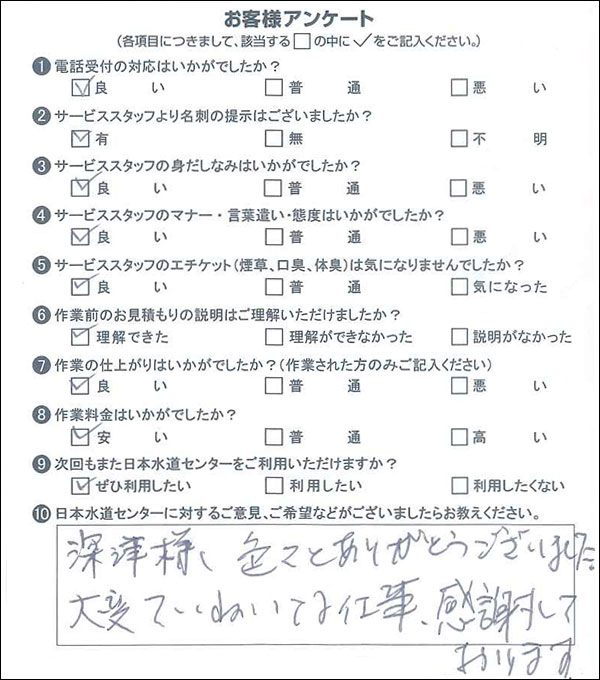 お客様アンケート
(各項目につきまして、該当する□の中に✓をご記入ください。)
❶ 電話受付の対応はいかがでしたか?
☑良い □普通 □悪い
❷ サービススタッフより名刺の提示はございましたか?
☑有 □無 □不明
❸ サービススタッフの身だしなみはいかがでしたか?
☑良い □普通 □悪い
❹ サービススタッフのマナー・言葉遣い・態度はいかがでしたか?
☑良い □普通 □悪い
❺ サービススタッフのエチケット(煙草、口臭、体臭)は気になりませんでしたか?
☑良い □普通 □気になった
❻ 作業前のお見積もりの説明はご理解いただけましたか?
☑理解できた □理解ができなかった □説明がなかった
❼ 作業の仕上がりはいかがでしたか?(作業された方のみご記入ください)
☑良い □普通 □悪い
❽ 作業料金はいかがでしたか?
☑安い □普通 □高い
❾ 次回もまた日本水道センターをご利用いただけますか?
☑ぜひ利用したい □利用したい □利用したくない
❿ 日本水道センターに対するご意見、ご希望などがございましたらお教えください。
深津様、色々とありがとうございました
大変ていねいな仕事、感謝して
おります